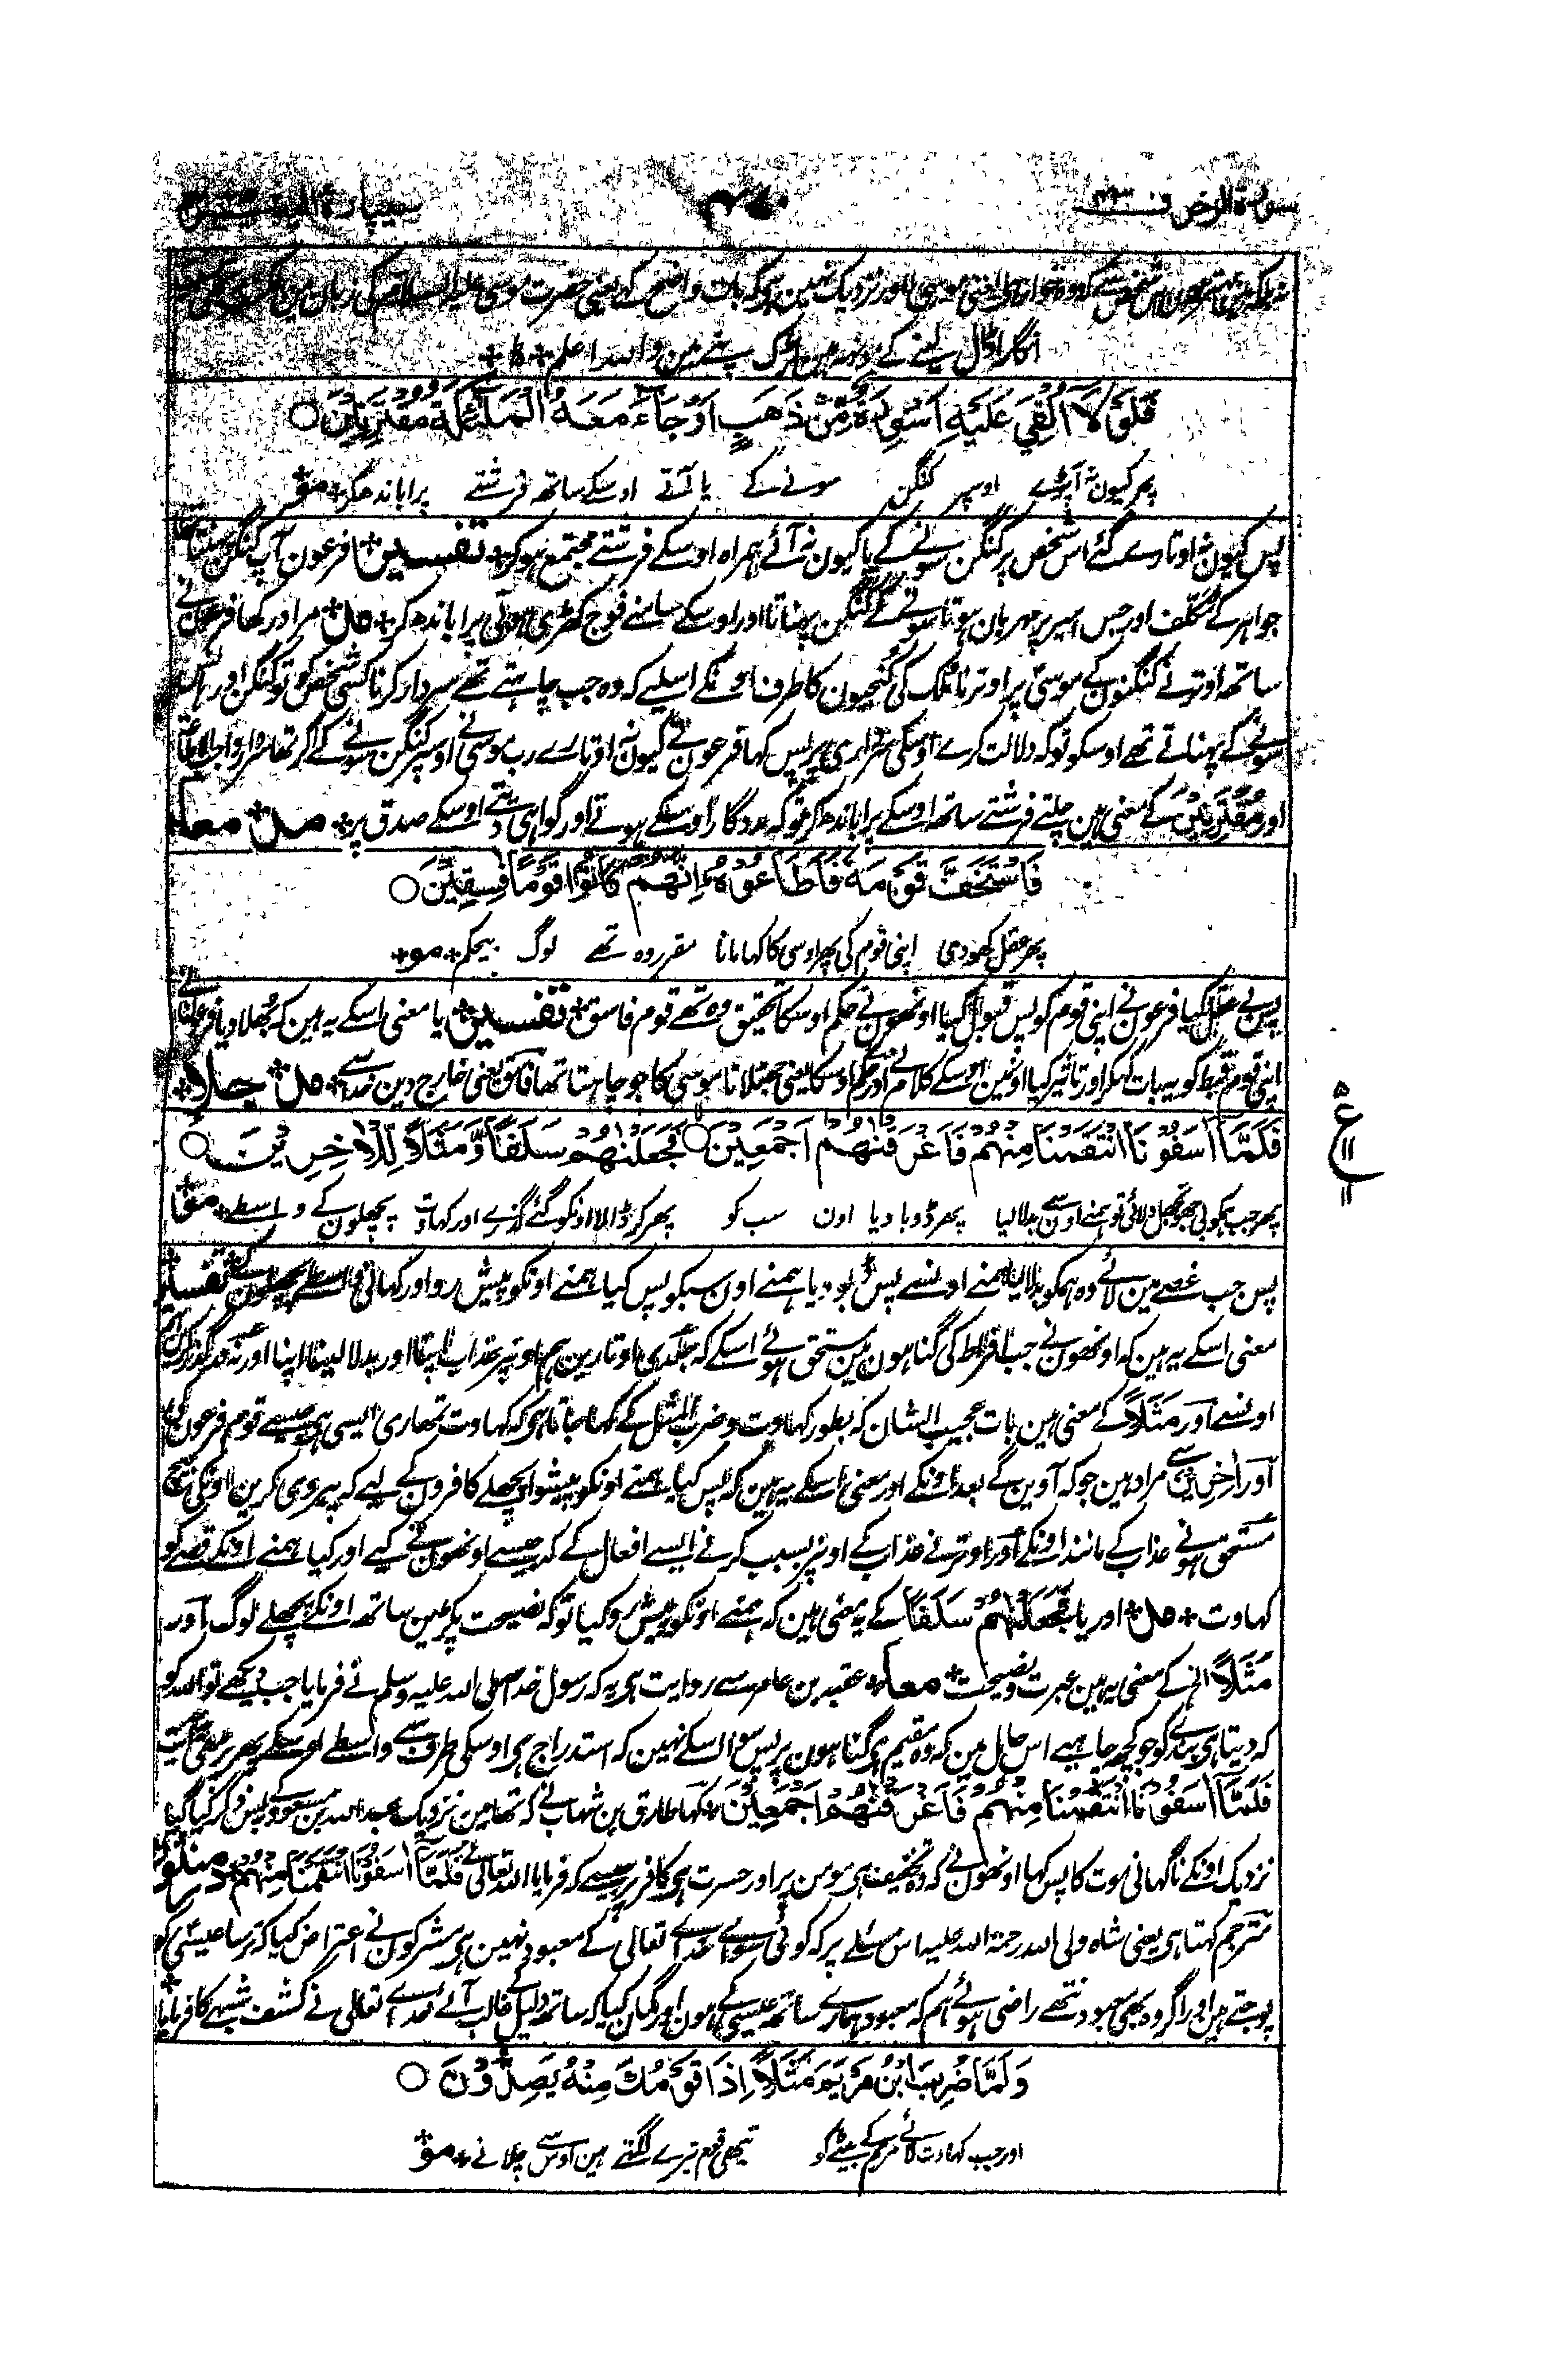 سورة الزخرف ٤٣
انگارا ڈال لینے کے مونہہ میں لڑک پنے مین واللہ اعلم + ط +
فَلَوْلَا أُلْقِيَ عَلَيْهِ أَسْوِرَةٌ مِّنْ ذَهَبٍ أَوْ جَاءَ مَعَهُ الْمَلٰٓئِكَةُ مُقْتَرِنِيْنَ ○
پھر کیون نہ آپڑے اوسپر کنگن سونے کے یا آتے اوسکے ساتھ فرشتے پرا باندھکر + مو +
پس کیون نہ اوتارے گئے اس شخص پر کنگن سونے کے یا کیون نہ آئے ہمراہ اوسکے فرشتے مجتمع ہوکر + تفسیر + فرعون آپ کنگن پہنتا تھا
جواہر کے مکلف اور جس امیر پر مہربان ہوتا سونے کے کنگن پہناتا اور اوسکے سامنے فوج کھڑی ہوتی پرا باندھ کر + ف + مراد رکھا فرعون نے
ساتھ اوترنے کنگنون کے موسیٰ پر اوترنا ملک کی کنجیون کا طرف اونکے اسلیے کہ وہ جب چاہتے تھے سردار کرنا کسی شخص کو تو کنگن اور
سونے کے پہناتے تھے اوسکو توکہ دلالت کرے اوسکی سرداری پر پس کہا فرعون نے کیون نہ اوتارے رب موسیٰ نے اوسپر کنگن سونے کے اگر تھا سردار واجب الاطاعة
اور مُقْتَرِنِيْنَ کے معنی ہین چلتے فرشتے ساتھ اوسکے پرا باندھ کر توکہ مددگار اوسکے ہوتے اور گواہی دیتے اوسکے صدق پر + مل + معا
فَاسْتَخَفَّ قَوْمَهٗ فَأَطَاعُوْهُ إِنَّهُمْ كَانُوْا قَوْمًا فٰسِقِيْنَ ○
پھر عقل کھودی اپنی قوم کی پھر اوسی کا کہا مانا مقرر وہ تھے لوگ بیحکم + مو +
پس بے عقل کیا فرعون نے اپنی قوم کو پس قبول کیا اونھون نے حکم اوسکا تحقیق وہ تھے قوم فاسق + تفسیر + یا معنی اسکے یہ ہین کہ پھسلا دیا فرعون نے
اپنی قوم قبط کو یہ بات کہکر اور تاثیر کیا اونمین اوسکے کلام نے اور حکم اوسکا یعنی جھٹلانا موسیٰ کا جو چاہتا تھا فاسق یعنی خارج دین خدا سے + مل + جلا +
فَلَمَّا اٰسَفُوْنَا انْتَقَمْنَا مِنْهُمْ فَأَغْرَقْنٰهُمْ أَجْمَعِيْنَ ○ فَجَعَلْنٰهُمْ سَلَفًا وَّمَثَلًا لِّلْاٰخِرِيْنَ ○
پھر جب ہمکو بھی جھونجھل دلائی تو ہمنے اون سے بدلا لیا پھر ڈوبا دیا اون سب کو پھر کر ڈالا اونکو گئے گذرے اور کہاوت پچھلون کے واسطے + مو +
پس جب غصے مین لائے وہ ہمکو بدلا لیا ہمنے اونسے پس ڈبودیا ہمنے اون سبکو پس کیا ہمنے اونکو پیش رو اور کہانی واسطے پچھلون کے + تفسیر
معنی اسکے یہ ہین کہ اونھون نے جب افراط کی گناہون مین مستحق ہوئے اسکے کہ جلدی اوتارین ہم اونپر عذاب اپنا اور بدلا لینا اپنا اور نہ درگذر کرین ہم
اونسے اور مَثَلًا کے معنی ہین بات عجیب الشان کہ بطور کہاوت و ضرب المثل کے کہا جاتا ہی کہ کہاوت تمھاری ایسی ہی جیسے قوم فرعون کی
اور اٰخِرِيْنَ سے مراد ہین جو کہ آوین گے بعد اونکے اور معنی اسکے یہ ہین کہ پس کیا ہمنے اونکو پیشوا پچھلے کافرون کے لیے کہ پیروی کرین اونکی بیچ
مستحق ہونے عذاب کے مانند اونکے اور اوترنے عذاب کے اونپر بسبب کرنے ایسے افعال کے کہ جیسے اونھون نے کیے اور کیا ہمنے اونکے قصے کو
کہاوت + مل + اور یا فَجَعَلْنٰهُمْ سَلَفًا کے یہ معنی ہین کہ ہمنے اونکو پیش رو کیا توکہ نصیحت پکڑین ساتھ اونکے پچھلے لوگ اور
مَثَلًا الخ کے معنی یہ ہین عبرت و نصیحت + معا + عقبہ بن عامر سے روایت ہی یہ کہ رسول خدا صلی اللہ علیہ وسلم نے فرمایا جب دیکھے تو اللہ کو
کہ دیتا ہی بندے کو جو کچھ چاہیے اس حال مین کہ وہ مقیم ہی گناہون پر پس سوا اسکے نہین کہ استدراج ہی اوسکی طرف سے واسطے اوسکے پھر پڑھی آیت
فَلَمَّا اٰسَفُوْنَا انْتَقَمْنَا مِنْهُمْ فَأَغْرَقْنٰهُمْ أَجْمَعِيْنَ کہا طارق بن شہاب نے کہ تھا مین نزدیک عبداللہ بن مسعود کے پس ذکر کیا گیا
نزدیک اونکے ناگہانی موت کا پس کہا اونھون نے کہ وہ تخفیف ہی مومن پر اور حسرت ہی کافر پر جیسے کہ فرمایا اللہ تعالی نے فَلَمَّا اٰسَفُوْنَا انْتَقَمْنَا مِنْهُمْ در منثور
مترجم کہتا ہی یعنی شاہ ولی اللہ رحمة اللہ علیہ اس مسئلے پر کہ کوئی سوائے خدائے تعالی کے معبود نہین ہی مشرکون نے اعتراض کیا کہ ترسا عیسیٰ کو
پوجتے ہین پر اگر وہ بھی معبود نتھے راضی ہوئے ہم کہ معبود ہمارے ساتھ عیسیٰ کے ہون اور گمان کیا کہ ساتھ دلیل کے غالب آئے خدائے تعالی نے کشف شبہے کا فرمایا +
وَلَمَّا ضُرِبَ ابْنُ مَرْيَمَ مَثَلًا إِذَا قَوْمُكَ مِنْهُ يَصِدُّوْنَ ○
اور جب کہاوت لائے مریم کے بیٹے کو تبھی قوم تیرے لگتے ہین اوس سے چلانے + مو +